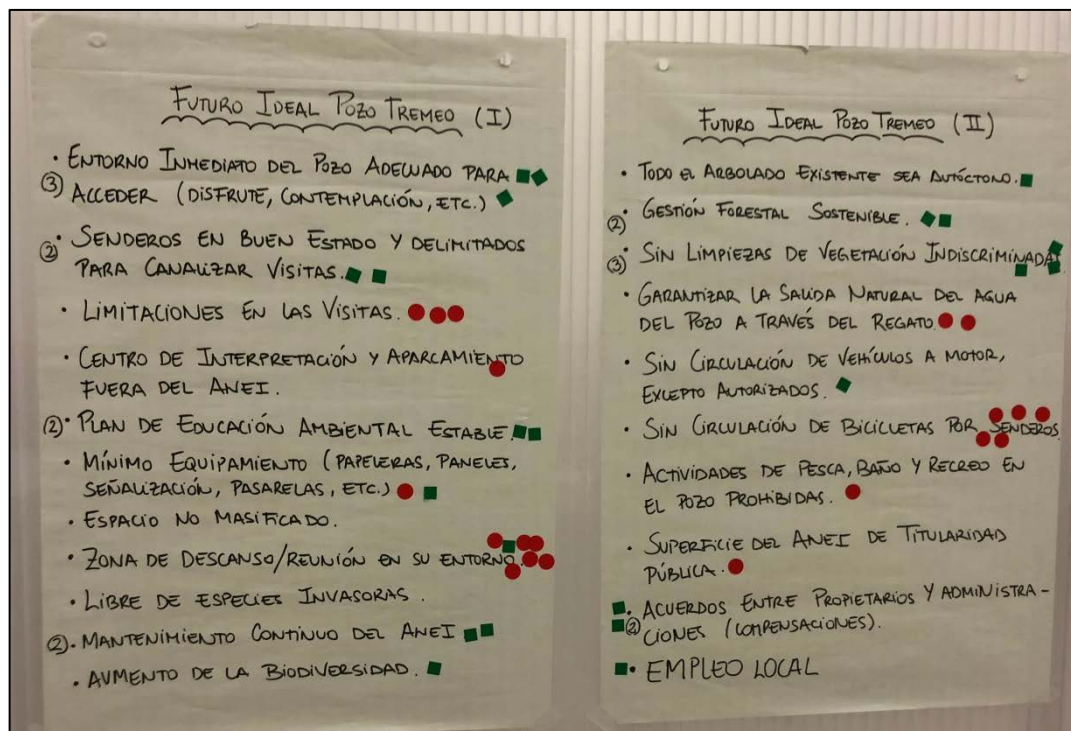 FUTURO IDEAL POZO TREMEO (I)
· ENTORNO INMEDIATO DEL POZO ADECUADO PARA
③ ACCEDER (DISFRUTE, CONTEMPLACIÓN, ETC.)
②· SENDEROS EN BUEN ESTADO Y DELIMITADOS
PARA CANALIZAR VISITAS.
· LIMITACIONES EN LAS VISITAS.
· CENTRO DE INTERPRETACIÓN Y APARCAMIENTO
FUERA DEL ANEI.
②· PLAN DE EDUCACIÓN AMBIENTAL ESTABLE.
· MÍNIMO EQUIPAMIENTO (PAPELERAS, PANELES,
SEÑALIZACIÓN, PASARELAS, ETC.)
· ESPACIO NO MASIFICADO.
· ZONA DE DESCANSO/REUNIÓN EN SU ENTORNO.
· LIBRE DE ESPECIES INVASORAS.
②· MANTENIMIENTO CONTINUO DEL ANEI
· AUMENTO DE LA BIODIVERSIDAD.
FUTURO IDEAL POZO TREMEO (II)
· TODO EL ARBOLADO EXISTENTE SEA AUTÓCTONO.
②· GESTIÓN FORESTAL SOSTENIBLE.
③· SIN LIMPIEZAS DE VEGETACIÓN INDISCRIMINADAS.
· GARANTIZAR LA SALIDA NATURAL DEL AGUA
DEL POZO A TRAVÉS DEL REGATO.
· SIN CIRCULACIÓN DE VEHÍCULOS A MOTOR,
EXCEPTO AUTORIZADOS.
· SIN CIRCULACIÓN DE BICICLETAS POR SENDEROS.
· ACTIVIDADES DE PESCA, BAÑO Y RECREO EN
EL POZO PROHIBIDAS.
· SUPERFICIE DEL ANEI DE TITULARIDAD
PÚBLICA.
· ACUERDOS ENTRE PROPIETARIOS Y ADMINISTRA-
② CIONES (COMPENSACIONES).
· EMPLEO LOCAL